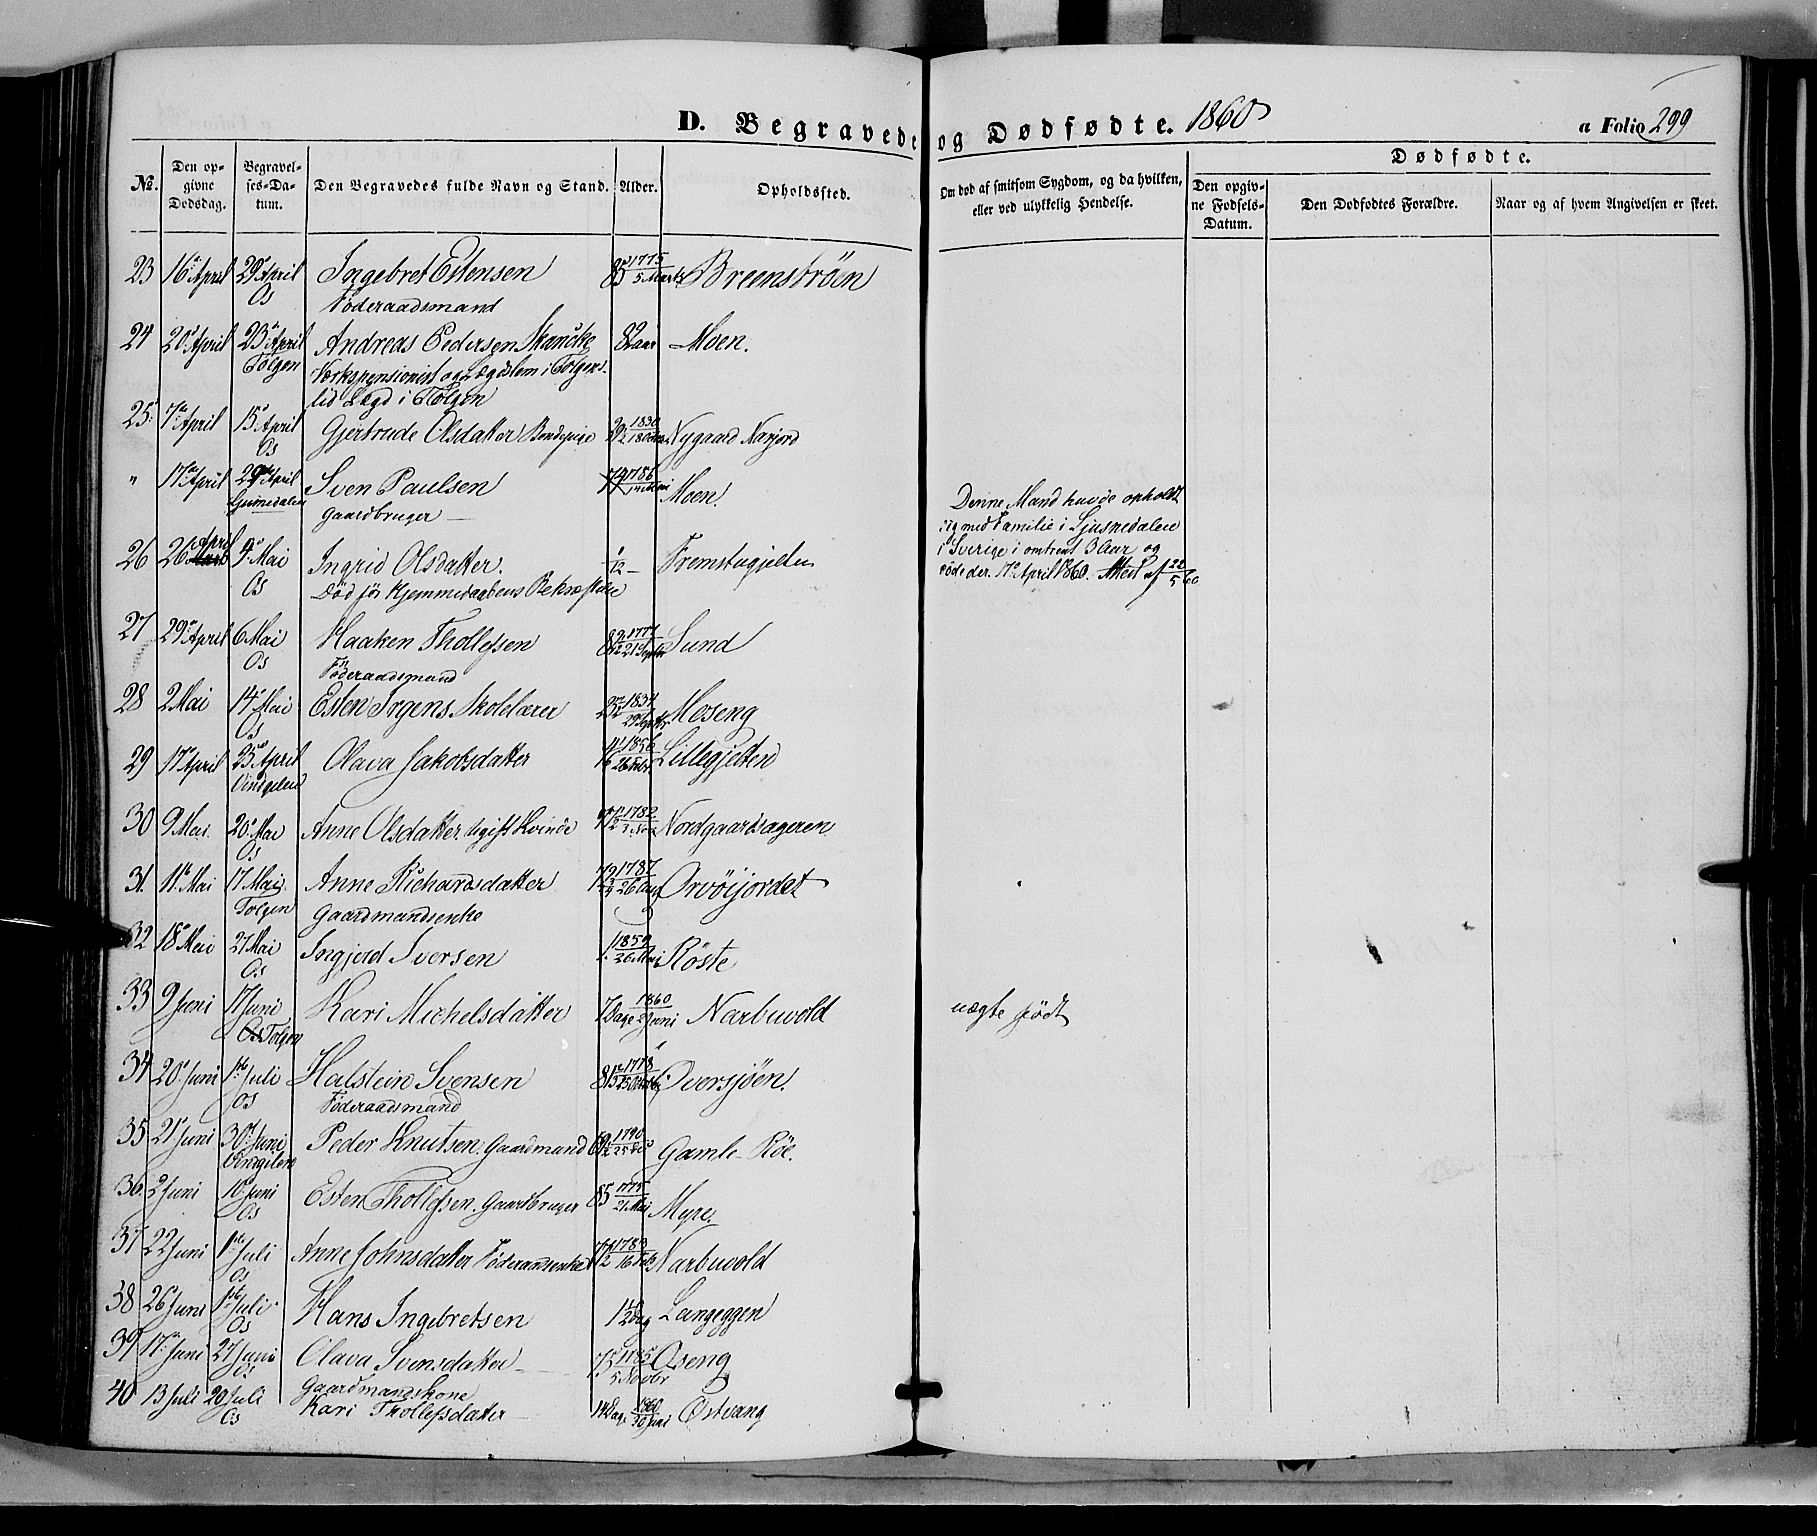 D. Begravede og Dødfødte. 1860
a Folio 299
Dødfødte.
No.
Den opgivne Dødsdag.
Begravelses-Datum.
Den Begravedes fulde Navn og Stand.
Alder.
Opholdssted.
Om død af smitsom Sygdom, og da hvilken, eller ved ulykkelig Hendelse.
Den opgivne Fødsels-Datum.
Den Dødfødtes Forældre.
Naar og af hvem Angivelsen er skeet.
23 16 April 29 April Ingebret Estensen 85 1775 5 Marts Breenstrøen
Os Føderaadsmand
24 20 April 23 April Andreas Pedersen Skancke 82 aar Moen.
Tolgen Værkspensionist og Lægdslem i Tolgens-
lid Lægd i Tolgen
25 7 April 15 April Gjertrude Olsdatter Bondepige 1830 Nygaard Narjord
Os
" 17 April 29 April Sven Paulsen 74 1786 14 Mai Moen.
Gaardbruger
Denne Mand havde opholdt
sig med Familie i Ljusnedalen
i Sverige i omtrent 3 Aar og
døde der. 17 April 1860. Attest af 22/5 60
26 26 April 9 Mai Ingrid Olsdatter. 1/12 Fremstugjelten
Os Død før Hjemmedaabens Bekræftelse
27 29 April 6 Mai Haaken Thollefsen 1777 21 Septbr Sund
Os Føderaadsmand
28 2 Mai 14 Mai Esten Irgens Skolelærer 1834 Moseng
Os
29 17 April 25 April Olava Jakobsdatter 1856 26 Febr. Lillegjelten
Vindgelen
30 9 Mai 20 Mai Anne Olsdatter ugift Kvinde 1782 Nordgaardsageren
Os
31. 11 Mai 17 Mai Anne Richardsdatter 1787 26 Aug Orvöijordet
Tolgen Gaardmandsenke
32 18 Mai 27 Mai Ingjerd Iversen 1 1859 26 Mai Röste
Os
33 9 Juni 17 Juni Kari Michelsdatter 7 Dage 1860 2 Juni Narbuvold uægte født
Tolgen
34 20 Juni 1ste Juli Halstein Svensen 1778 Oversjöen
Os Føderaadsmand
35 21 Juni 30 Juni Peder Knutsen. Gaardmand 1790 Gamle Röe.
Vingelen
36 2 Juni 10 Juni Esten Thollefsen. Gaardbruger 85 1775 21 Mai Myre.
Os
37 22 Juni 1ste Juli Anne Johnsdatter Føderaadsenke 1783 16 Feb Narbuvold
Os
38 26 Juni 1ste Juli Hans Ingebretsen Langeggen
Os
39 17 Juni 27 Juni Olava Svensdatter 75 1785 5 Novbr Oseng
Os Gaardmandskone
40 13 Juli 20 Juli Kari Thollefsdatter 14 Dage 1860 30 Juni Östvang
Os